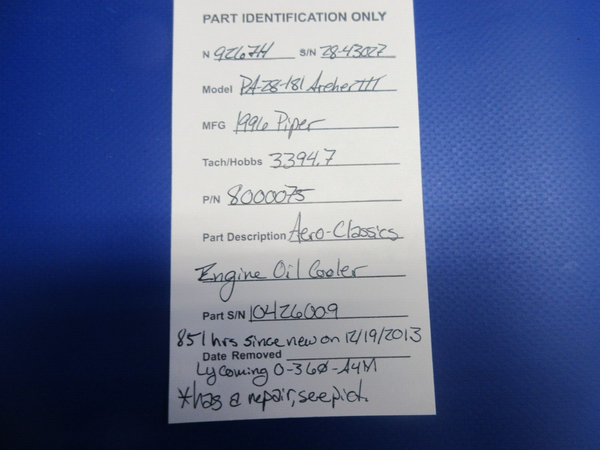 PART IDENTIFICATION ONLY
N 9267H S/N 28-43027
Model PA-28-181 Archer III
MFG 1996 Piper
Tach/Hobbs 3394.7
P/N 8000075
Part Description Aero-Classics
Engine Oil Cooler
Part S/N 10426009
851 hrs since new on 12/19/2013
Date Removed
Lycoming O-360-A4M
*has a repair, see pict.